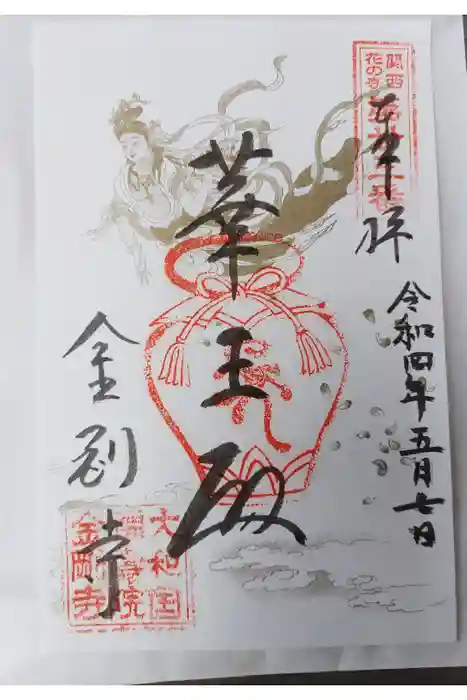 関西
花の寺
第廿三番
奉拝
令和四年五月七日
華王殿
金剛寺
大和国
金剛寺